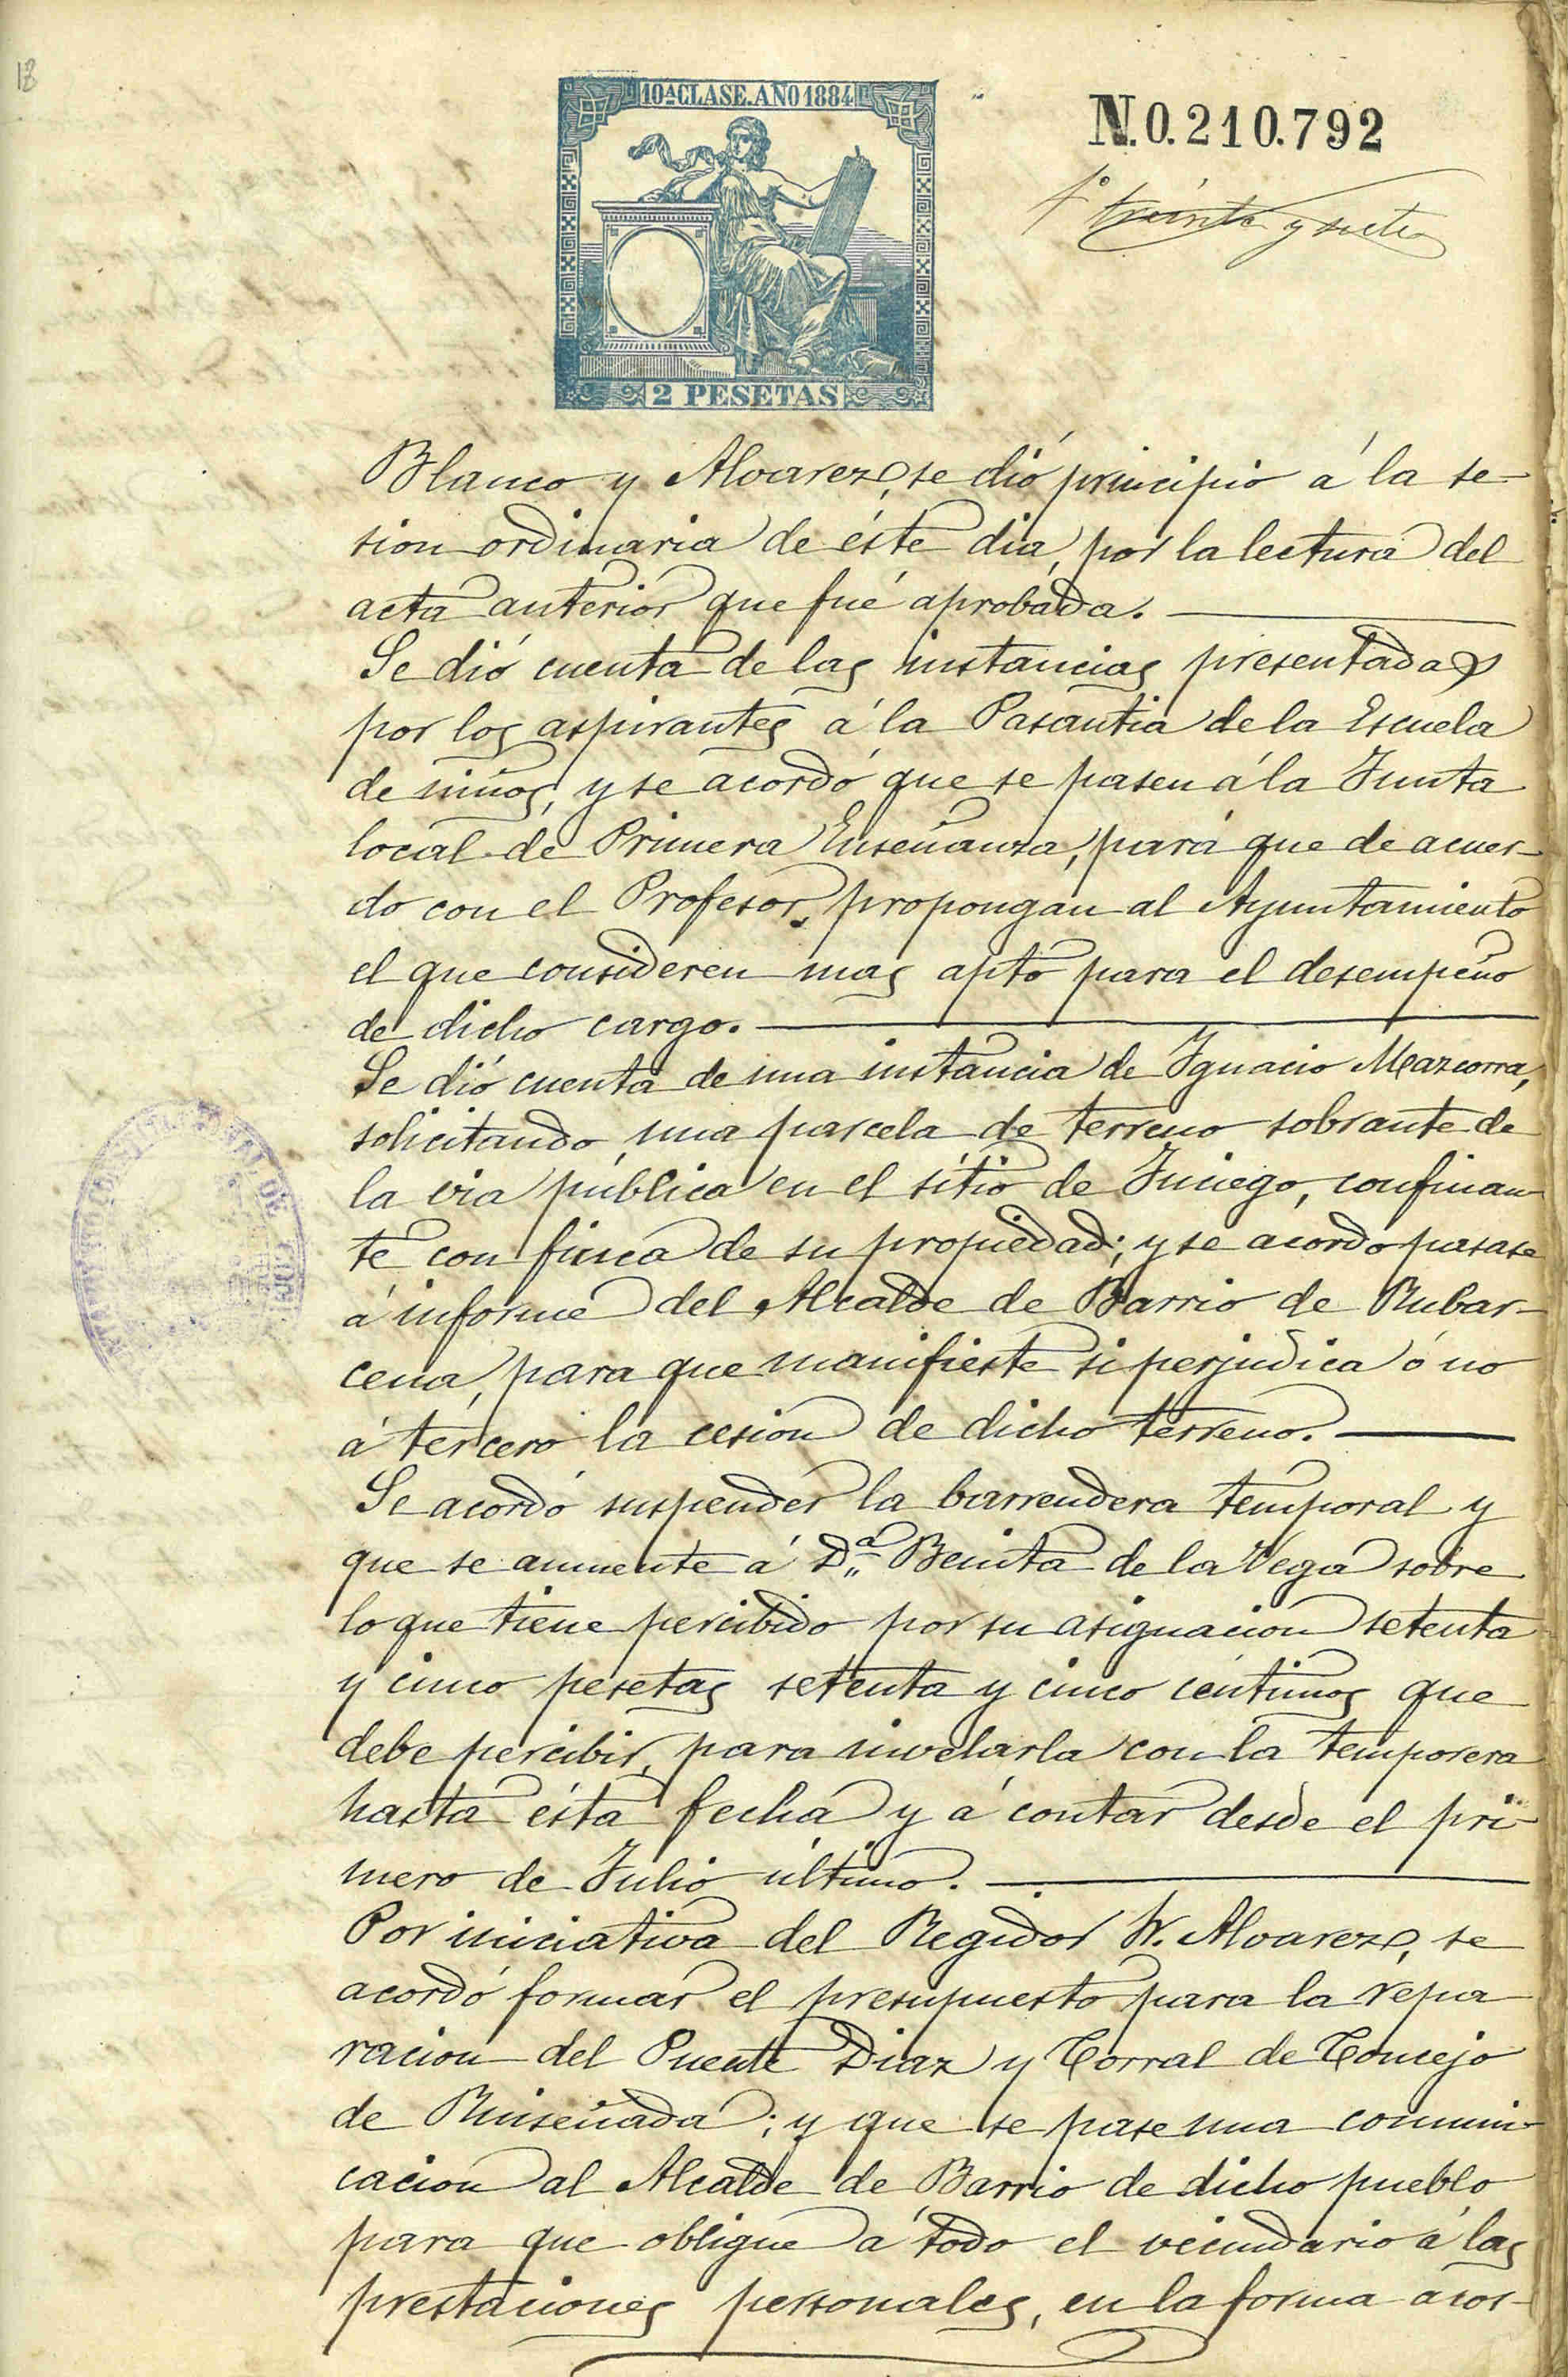 18
10ª CLASE. AÑO 1884
N.0.210.792
fº treinta y siete
2 PESETAS
Blanco y Alvarez, se dió principio á la se-
sion ordinaria de éste dia, por la lectura del
acta anterior que fué aprobada.
Se dió cuenta de las instancias presentadas
por los aspirantes á la Pasantia de la Escuela
de niños, y se acordó que se pasen á la Junta
local de Primera Enseñanza, para que de acuer-
do con el Profesor, propongan al Ayuntamiento
el que consideren mas apto para el desempeño
de dicho cargo.
Se dió cuenta de una instancia de Ignacio Mazcorra,
solicitando una parcela de terreno sobrante de
la via pública en el sítio de Juniego, confinan-
te con finca de su propiedad; y se acordo pasase
á informe del Alcalde de Barrio de Rubar-
cena, para que manifieste si perjudica ó no
á tercero la cesion de dicho terreno.
Se acordó suspender la barrendera temporal y
que se aumente á D.ª Benita de la Vega sobre
lo que tiene percibido por su asignacion setenta
y cinco pesetas setenta y cinco céntimos que
debe percibir, para nivelarla con la temporera
hasta ésta fecha y á contar desde el pri-
mero de Julio último.
Por iniciativa del Regidor Sr. Alvarez, se
acordó formar el presupuesto para la repa-
racion del Puente Diaz y Corral de Concejo
de Ruiseñada; y que se pase una comuni-
cacion al Alcalde de Barrio de dicho pueblo
para que obligue á todo el vecindario á las
prestaciones personales, en la forma acor-